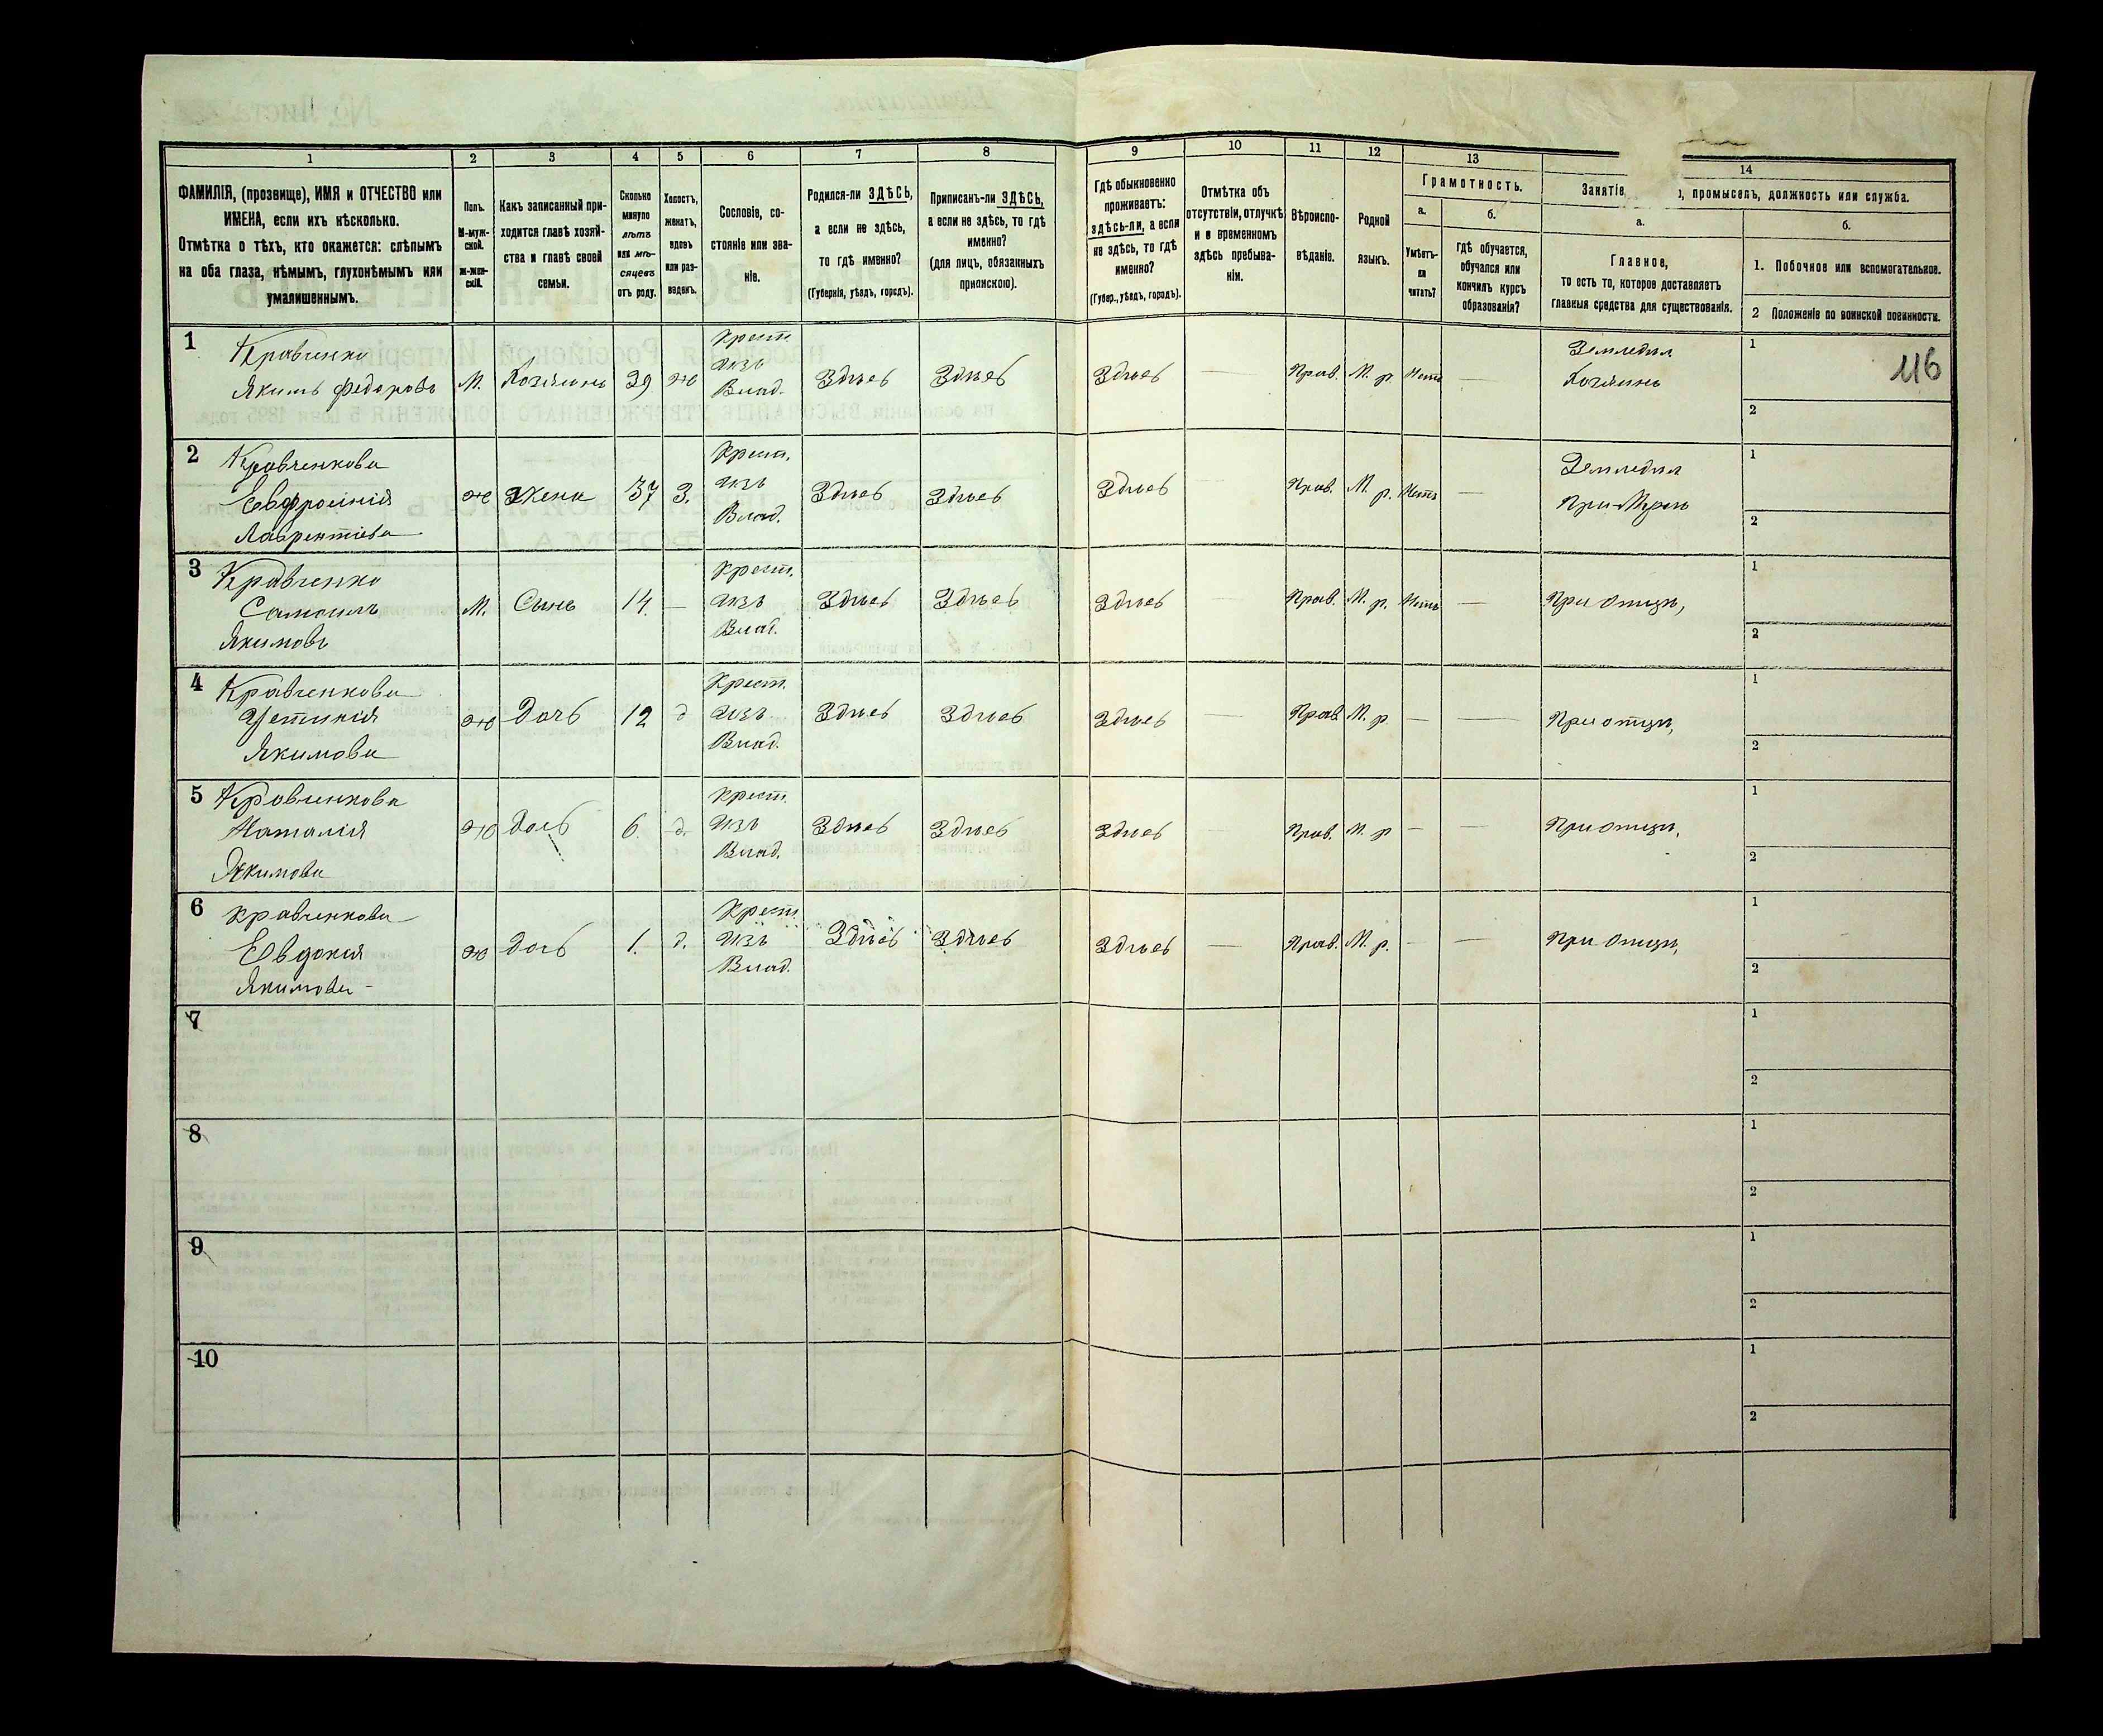 1 2 3 4 5 6 7 8 9 10 11 12 13 14
ФАМИЛІЯ, (прозвище), ИМЯ и ОТЧЕСТВО или
ИМЕНА, если ихъ нѣсколько.
Отмѣтка о тѣхъ, кто окажется: слѣпымъ
на оба глаза, нѣмымъ, глухонѣмымъ или
умалишеннымъ.
Полъ.
М-муж-
ской.
ж-жен-
скій.
Какъ записанный при-
ходится главѣ хозяй-
ства и главѣ своей
семьи.
Сколько
минуло
лѣтъ
или мѣ-
сяцевъ
отъ роду.
Холостъ,
женатъ,
вдовъ
или раз-
веденъ.
Сословіе, со-
стояніе или зва-
ніе.
Родился-ли ЗДѢСЬ,
а если не здѣсь,
то гдѣ именно?
(Губернія, уѣздъ, городъ).
Приписанъ-ли ЗДѢСЬ,
а если не здѣсь, то гдѣ
именно?
(для лицъ, обязанныхъ
припискою).
Гдѣ обыкновенно
проживаетъ:
здѣсь-ли, а если
не здѣсь, то гдѣ
именно?
(Губер., уѣздъ, городъ).
Отмѣтка объ
отсутствіи, отлучкѣ
и о временномъ
здѣсь пребыва-
ніи.
Вѣроиспо-
вѣданіе.
Родной
языкъ.
Грамотность.
а.
Умѣетъ-
ли
читать?
б.
гдѣ обучается,
обучался или
кончилъ курсъ
образованія?
Занятіе, промыселъ, должность или служба.
а.
Главное,
то есть то, которое доставляетъ
главныя средства для существованія.
б.
1. Побочное или вспомогательное.
2 Положеніе по воинской повинности.
116
1 Кравченко
Якимъ Федоровъ М. Хозяинъ 39 ж
Крест.
изъ
Влад.
Здѣсь Здѣсь Здѣсь — Прав. М. р. Нетъ —
Земледѣл
Хозяинъ
1
2
2 Кравченкова
Евфросинія
Лаврентіева
ж Жена 37 З.
Крест.
изъ
Влад.
Здѣсь Здѣсь Здѣсь — Прав. М. р. Нетъ —
Земледѣл
При Мужѣ
1
2
3 Кравченко
Самоилъ
Якимовъ
М. Сынъ 14. —
Крест.
изъ
Влад.
Здѣсь Здѣсь Здѣсь — Прав. М. р. Нетъ —
При отцѣ,
1
2
4 Кравченкова
Устинія
Якимова
ж Дочь 12 д
Крест.
изъ
Влад.
Здѣсь Здѣсь Здѣсь — Прав. М. р. — —
При отцѣ,
1
2
5 Кравченкова
Наталія
Якимова
ж Дочь 6. д.
Крест.
изъ
Влад.
Здѣсь Здѣсь Здѣсь Прав. М. р — —
При отцѣ,
1
2
6 Кравченкова
Евдокія
Якимова
ж Дочь 1. д.
Крест.
изъ
Влад.
Здѣсь Здѣсь Здѣсь — Прав. М. р. — —
При отцѣ,
1
2
7
1
2
8
1
2
9
1
2
10
1
2